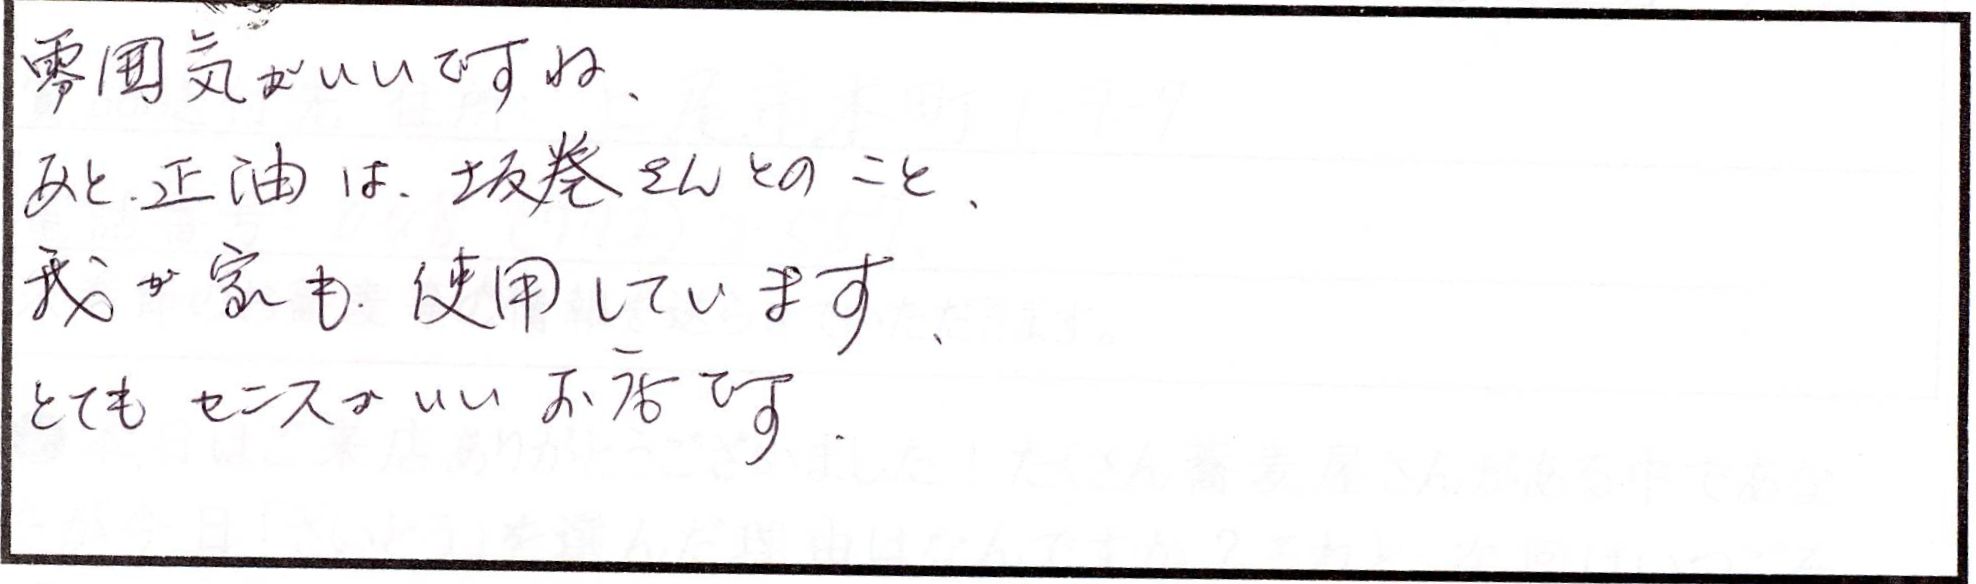 雰囲気がいいですね、
あと.正油は、坂巻さんとのこと、
我が家も.使用しています、
とてもセンスがいいお店です.